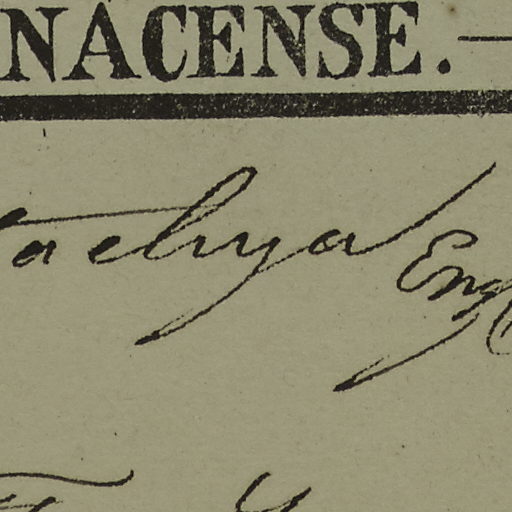 NACENSE.—
tachya Eng